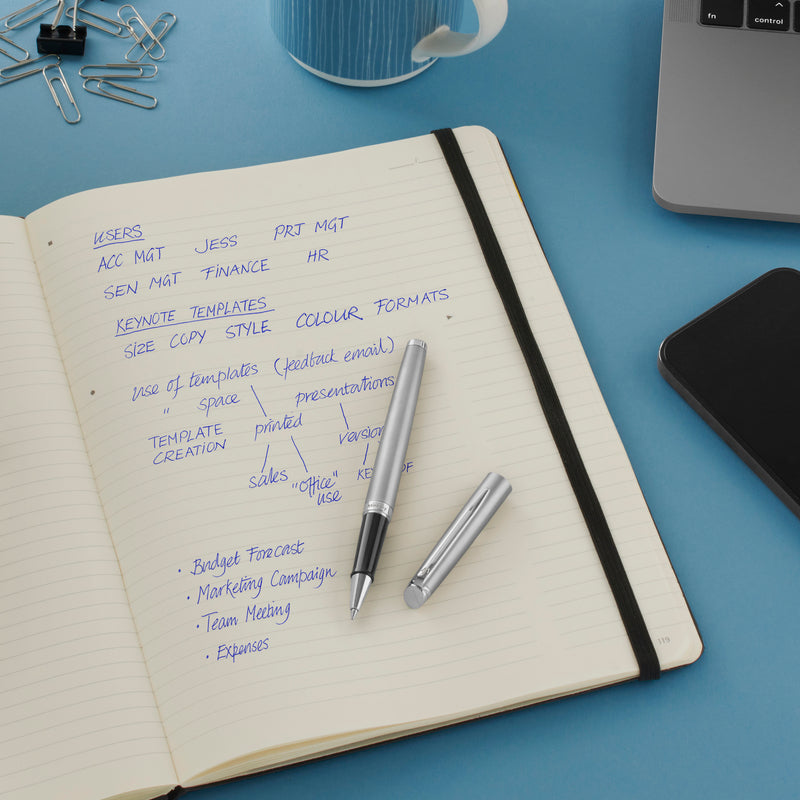 fn
control
USERS
ACC MGT JESS PRJ MGT
SEN MGT FINANCE HR
KEYNOTE TEMPLATES
SIZE COPY STYLE COLOUR FORMATS
use of templates (feedback email)
" space presentations
TEMPLATE printed
CREATION
sales "office"
use
• Budget Forecast
• Marketing Campaign
• Team Meeting
• Expenses
119